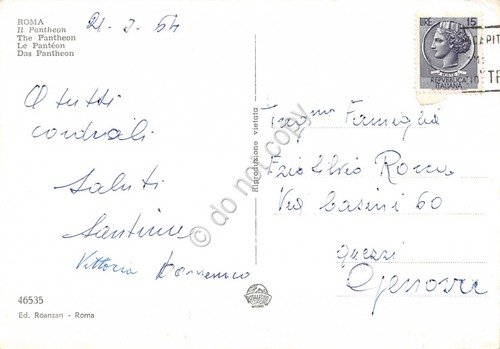 ROMA
Il Pantheon
The Pantheon
Le Pantéon
Das Pantheon
21-3-54
A tutti
cordiali
saluti
Vittoria Domenico
46535
Ed. Roanzan - Roma
Riproduzione vietata
© do not copy
LIRE 15
REPVBBLICA
ITALIANA
Famiglia
Ezio Silvio Rocca
Via Casini 60
Genova